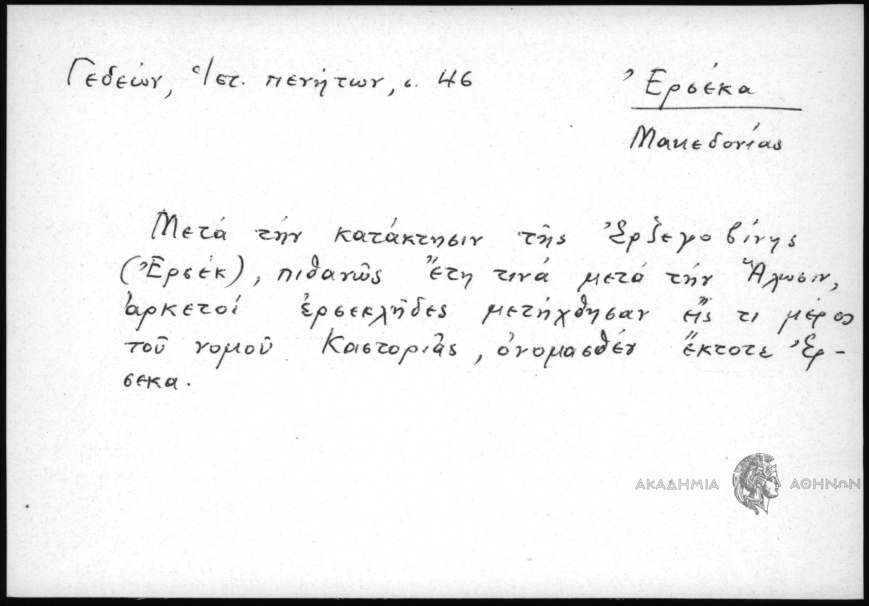 Γεδεών, Ἱστ. πενήτων, σ. 46
Ἐρσέκα
Μακεδονίας
Μετά τήν κατάκτησιν τῆς Ἐρζεγοβίνης
(Ἐρσέκ), πιθανῶς ἔτη τινά μετά τήν Ἅλωσιν,
ἀρκετοί ἐρσεκλῆδες μετήχθησαν εἴς τι μέρος
τοῦ νομοῦ Καστοριᾶς, ὀνομασθέν ἔκτοτε Ἐρ-
σεκα.
ΑΚΑΔΗΜΙΑ ΑΘΗΝΩΝ